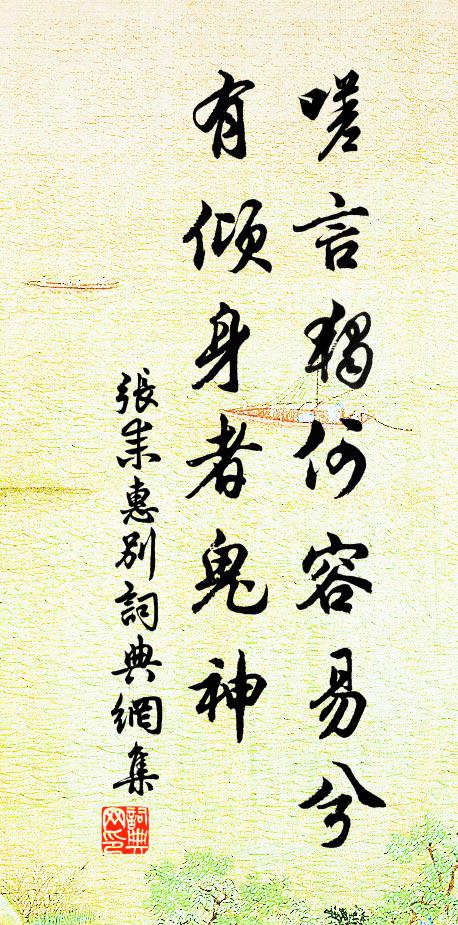 嗟言獨何容易兮
有傾身者鬼神
張耒惠別詞典網集
詞典
網印